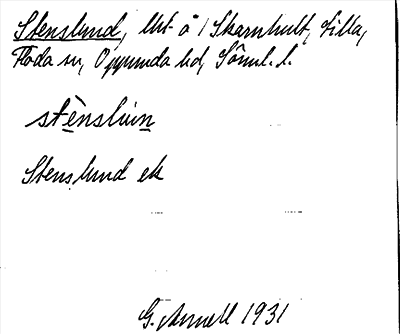 Stenslund, lht å 1 Skarnhult, Lilla,
Floda sn, Oppunda hd, Söml. l.
stènslun
Stenslund ek
G. Arnell 1931